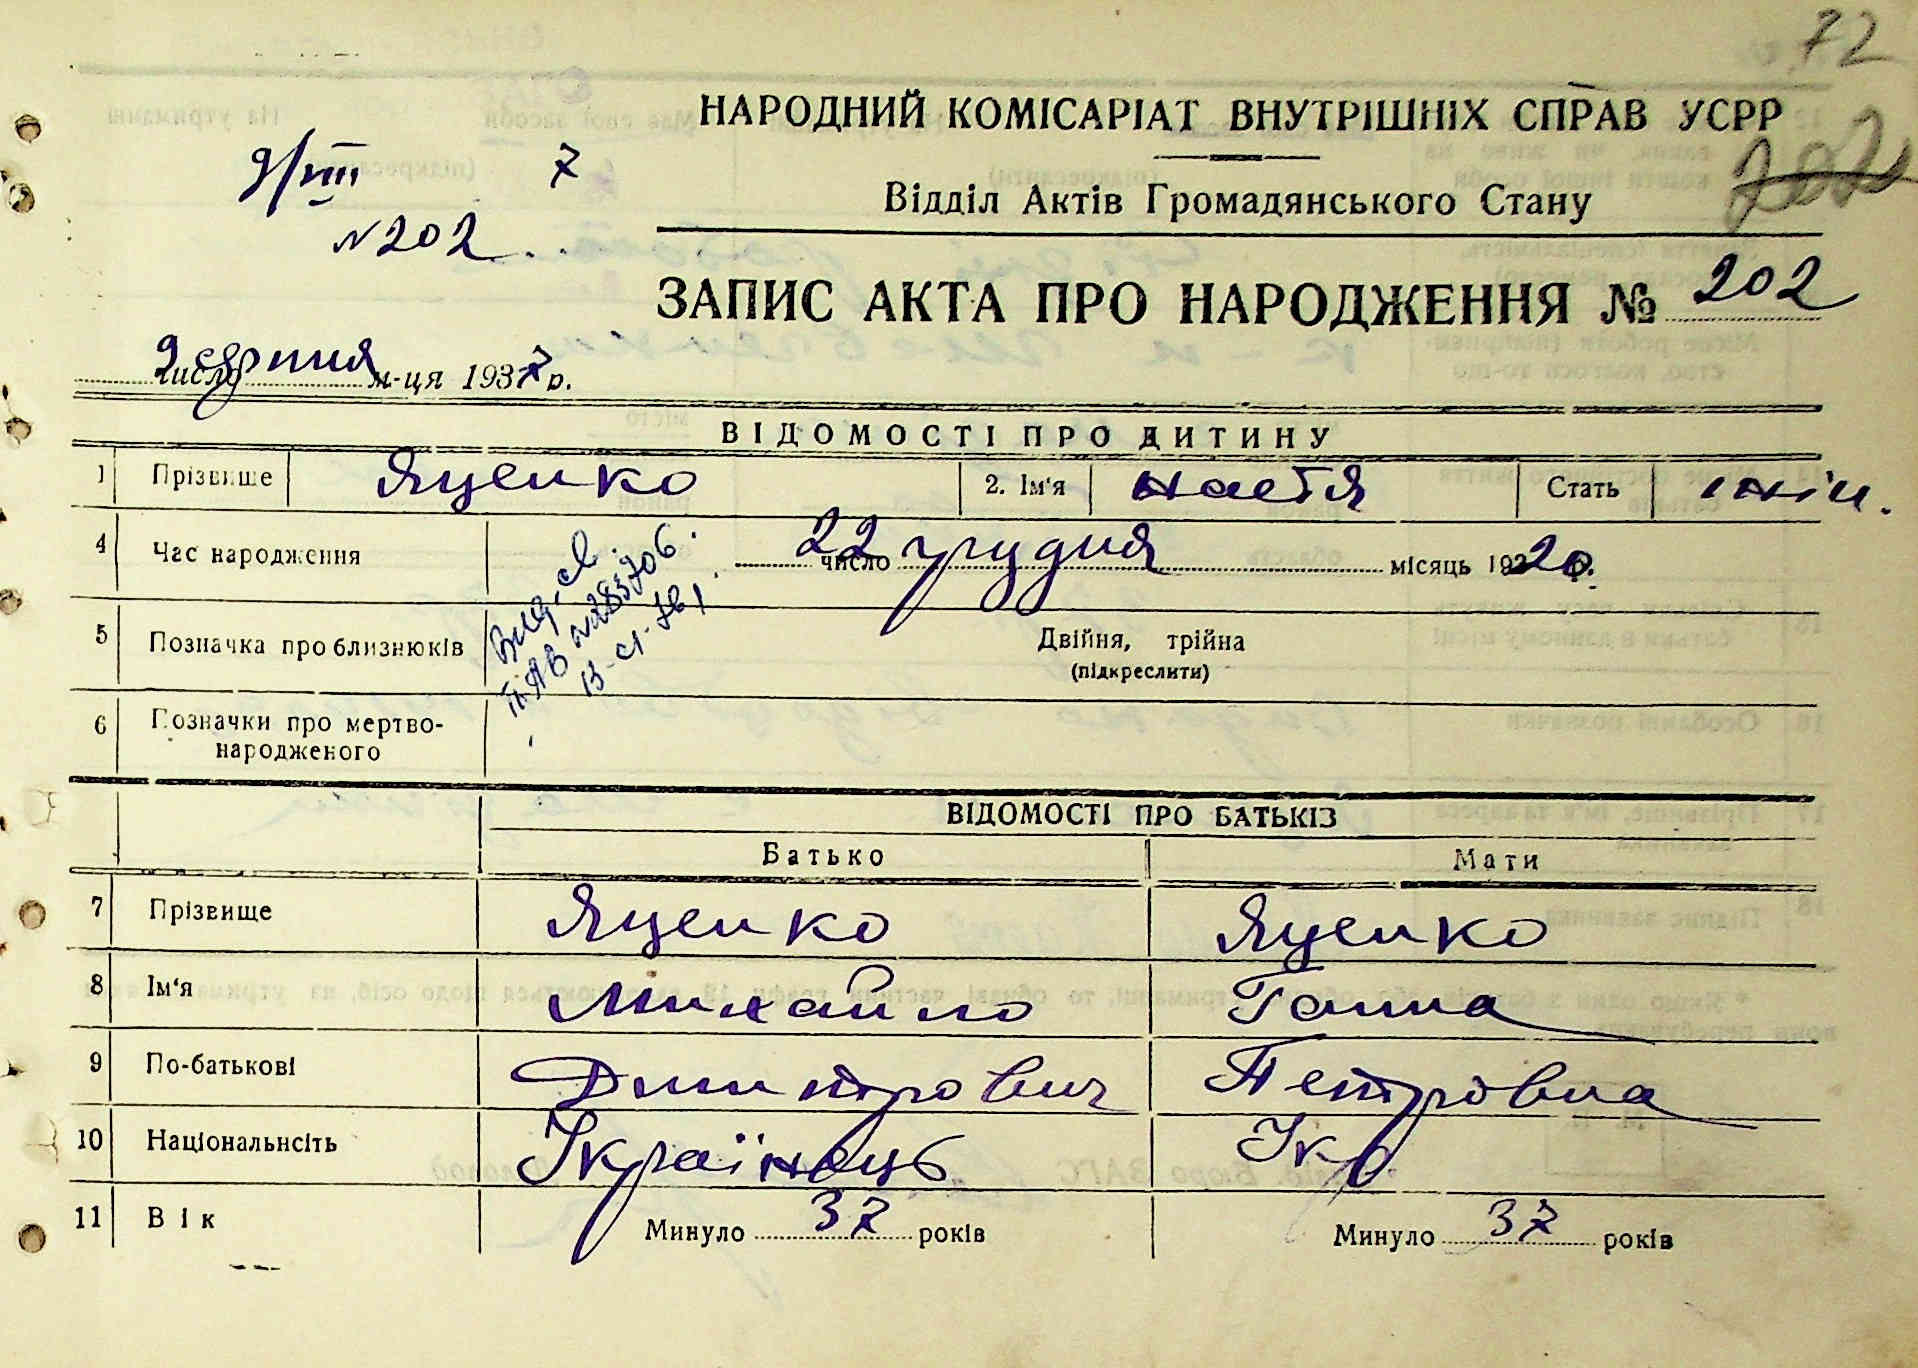 72
НАРОДНИЙ КОМІСАРІАТ ВНУТРІШНІХ СПРАВ УСРР
9/VIII 7
Відділ Актів Громадянського Стану
202
№202
ЗАПИС АКТА ПРО НАРОДЖЕННЯ № 202
9 число серпня м-ця 1937 р.
ВІДОМОСТІ ПРО ДИТИНУ
1 Прізвище Яценко 2. Ім'я Настя Стать жін.
4 Час народження 22 число грудня місяць 1920 р.
5 Позначка про близнюків Двійня, трійна
(підкреслити)
6 Позначки про мертво-
народженого
ВІДОМОСТІ ПРО БАТЬКІВ
Батько Мати
7 Прізвище Яценко Яценко
8 Ім'я Михайло Ганна
9 По-батькові Дмитрович Петрівна
10 Національнсіть Українець Укр.
11 Вік Минуло 37 років Минуло 37 років